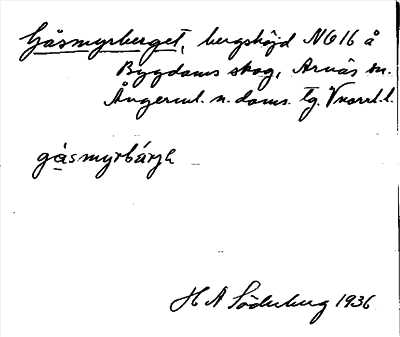 Gåsmyrberget, bergshöjd NO 16 å
Bygdoms skog, Arnäs sn.
Ångerml. n. doms. tg. Vnorrl. l.
gåsmyrbárjə
H A Söderberg 1936